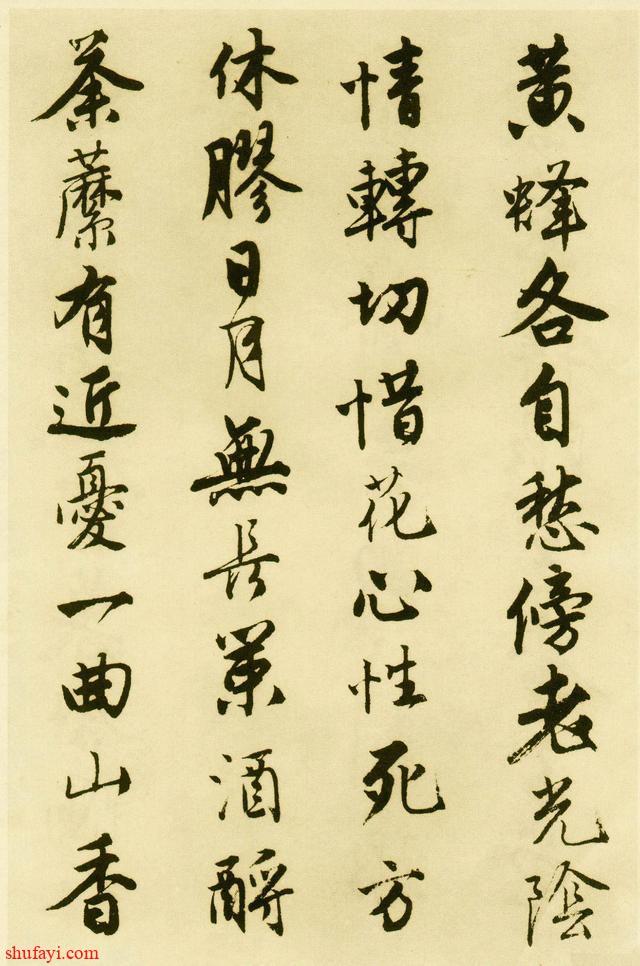 黄蜂各自愁傍老光陰
情轉切惜花心性死方
休膠日月無長策酒酹
荼䕷有近憂一曲山香
shufayi.com